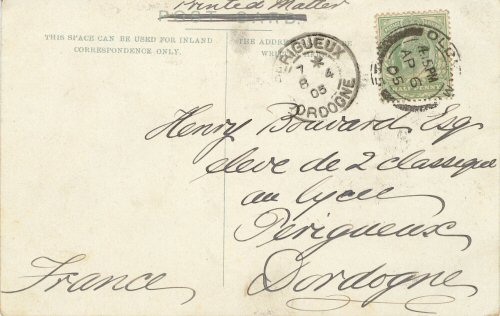 Printed Matter
POST CARD
THIS SPACE CAN BE USED FOR INLAND
CORRESPONDENCE ONLY.
THE ADDRESS
PERIGUEUX
7 4
8
05
DORDOGNE
4. 5 PM
AP 6
05
Henry Bouvard Esq
élève de 2 classique
au lycée
Périgueux
Dordogne
France